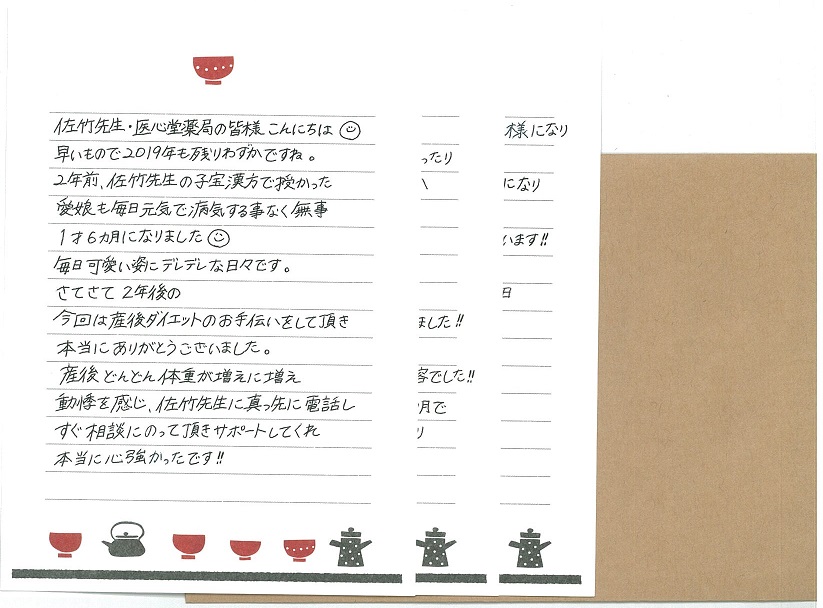 佐竹先生・医心堂薬局の皆様こんにちは
早いもので2019年も残りわずかですね。
2年前、佐竹先生の子宝漢方で授かった
愛娘も毎日元気で病気する事なく無事
1才6ヵ月になりました
毎日可愛い姿にデレデレな日々です。
さてさて2年後の
今回は産後ダイエットのお手伝いをして頂き
本当にありがとうございました。
産後どんどん体重が増えに増え
動悸を感じ、佐竹先生に真っ先に電話し
すぐ相談にのって頂きサポートしてくれ
本当に心強かったです!!
ったり
ました!!
でした!!
月で
り
様になり
になり
います!!
日